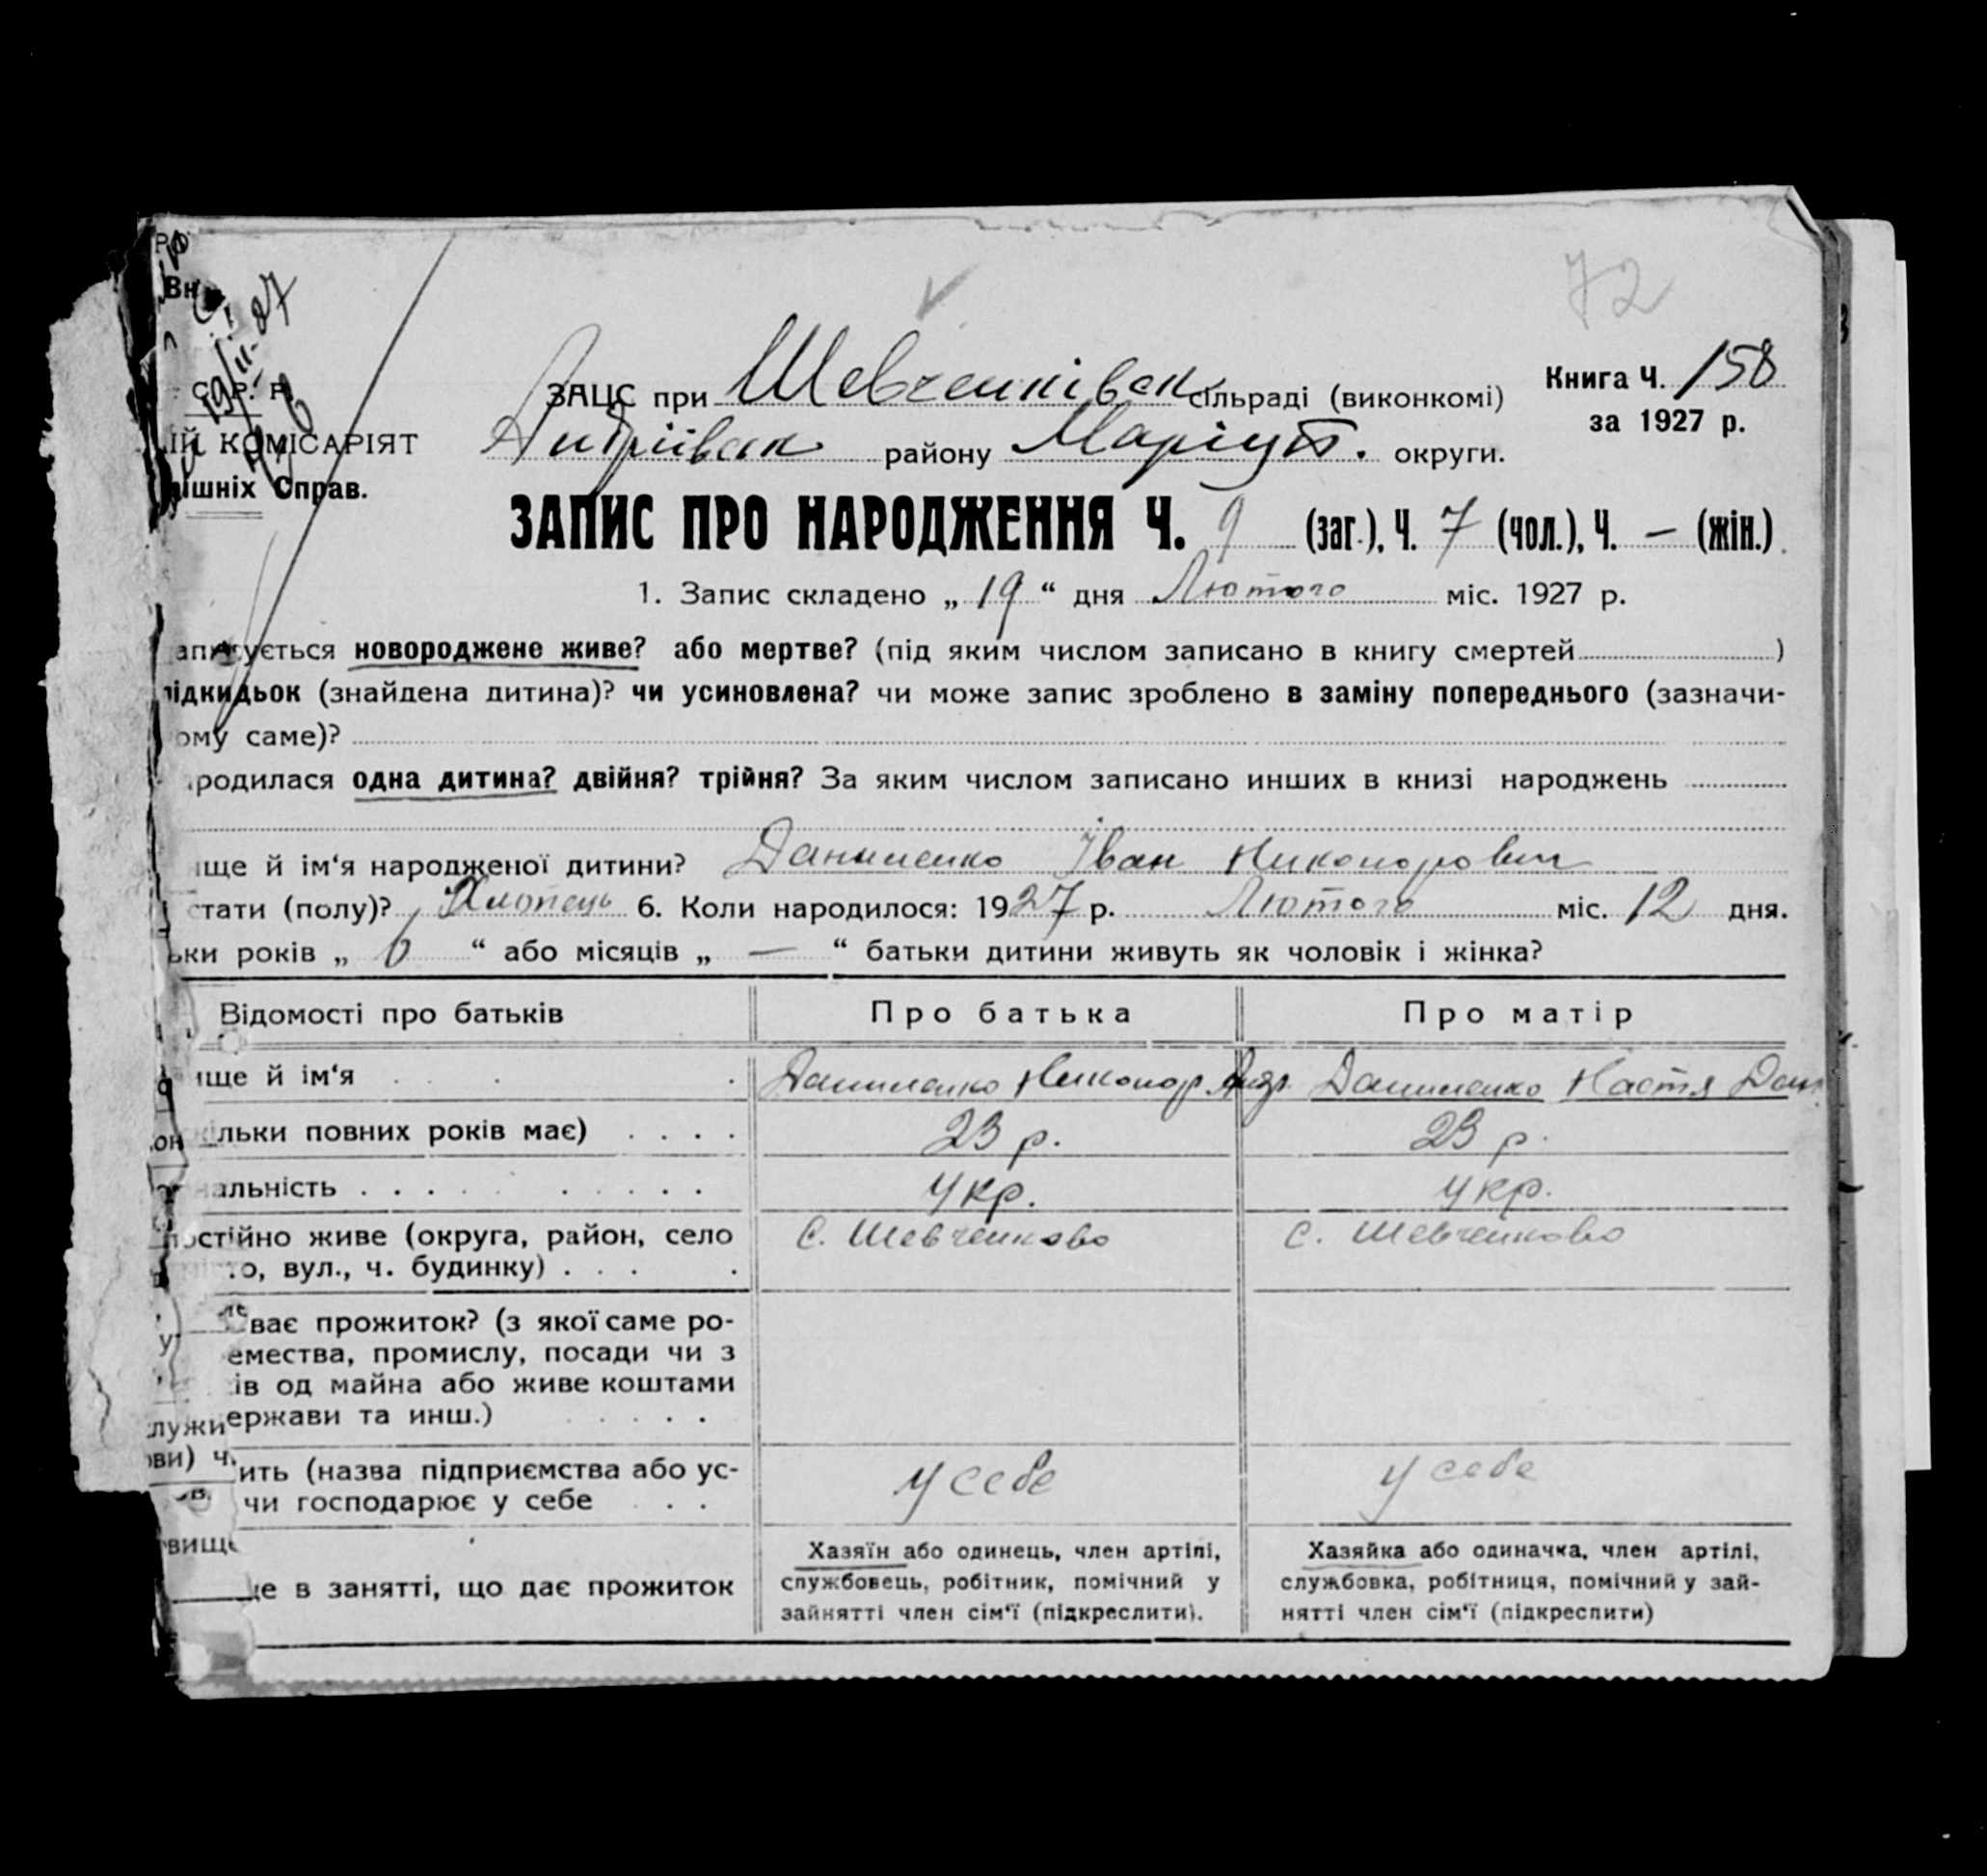 72
ЗАЦС при Шевченківськ сільраді (виконкомі)
Книга Ч. 158
за 1927 р.
Андріївськ району Маріуп. округи.
С. Р. Р.
ІЙ КОМІСАРІЯТ
ішніх Справ.
19/II-27
ЗАПИС ПРО НАРОДЖЕННЯ Ч. 9 (заг.), Ч. 7 (чол.), Ч. — (жін.)
1. Запис складено „ 19 “ дня Лютого міс. 1927 р.
аписується новороджене живе? або мертве? (під яким числом записано в книгу смертей )
ідкидьок (знайдена дитина)? чи усиновлена? чи може запис зроблено в заміну попереднього (зазначи-
ому саме)?
родилася одна дитина? двійня? трійня? За яким числом записано инших в книзі народжень
ище й ім‘я народженої дитини? Даниленко Іван Никонорович
стати (полу)? Хлопець 6. Коли народилося: 1927 р. Лютого міс. 12 дня.
ьки років „ 6 “ або місяців „ — “ батьки дитини живуть як чоловік і жінка?
Відомості про батьків Про батька Про матір
ище й ім‘я Даниленко Никонор Андр. Даниленко Настя Дан
ільки повних років має) 23 р. 23 р.
альність укр. укр.
постійно живе (округа, район, село с. Шевченково с. Шевченково
то, вул., ч. будинку)
ває прожиток? (з якої саме ро-
емества, промислу, посади чи з
ів од майна або живе коштами
ержави та инш.)
ить (назва підприємства або ус- у себе у себе
чи господарює у себе
е в занятті, що дає прожиток
Хазяїн або одинець, член артілі,
службовець, робітник, помічний у
зайнятті член сім‘ї (підкреслити).
Хазяйка або одиначка, член артілі,
службовка, робітниця, помічний у зай-
нятті член сім‘ї (підкреслити)